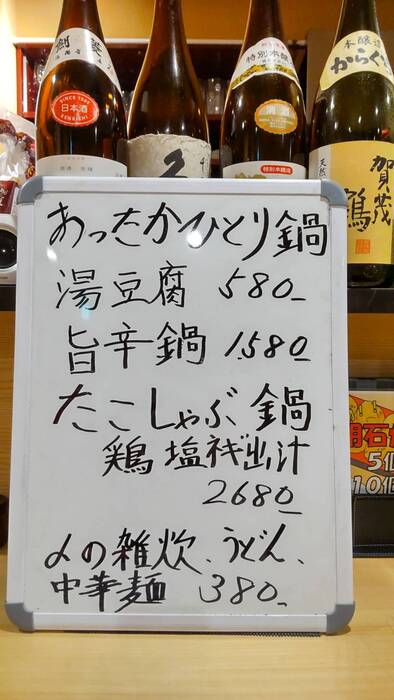 日本酒
特別本醸造
特別本醸造
本醸造
からくち
賀茂鶴
天然
あったかひとり鍋
湯豆腐 580-
旨辛鍋 1,580-
たこしゃぶ鍋
鶏塩ネギ出汁
2680-
〆の雑炊、うどん、
中華麺 380-
明石
5個
10個